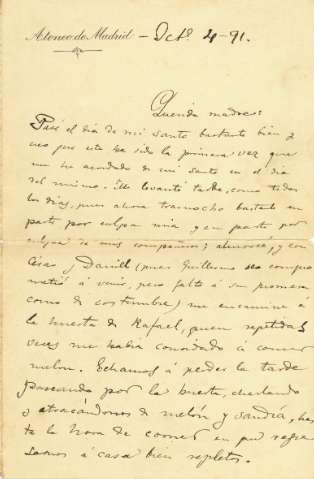 Ateneo de Madrid – Oct.e 4–91.
Querida madre:
Pasé el día de mi santo bastante bien y
creo que esta ha sido la primera vez que
me he acordado de mi santo en el día
del mismo. Me levanté tarde, como todos
los días, pues ahora trasnocho bastante en
parte por culpa mia y en parte por
culpa de mis compañeros; almorcé, y con
César y Daniel (pues Guillermo se compro
metió á venir, pero faltó á su promesa
como de costumbre) me encaminé á
la huerta de Rafael, quien repetidas
veces me había convidado á comer
melon. Echamos á perder la tarde
paseando por la huerta, charlando
y atracándonos de melón y sandía, has
ta la hora de comer en que regre
samos á casa bien repletos.